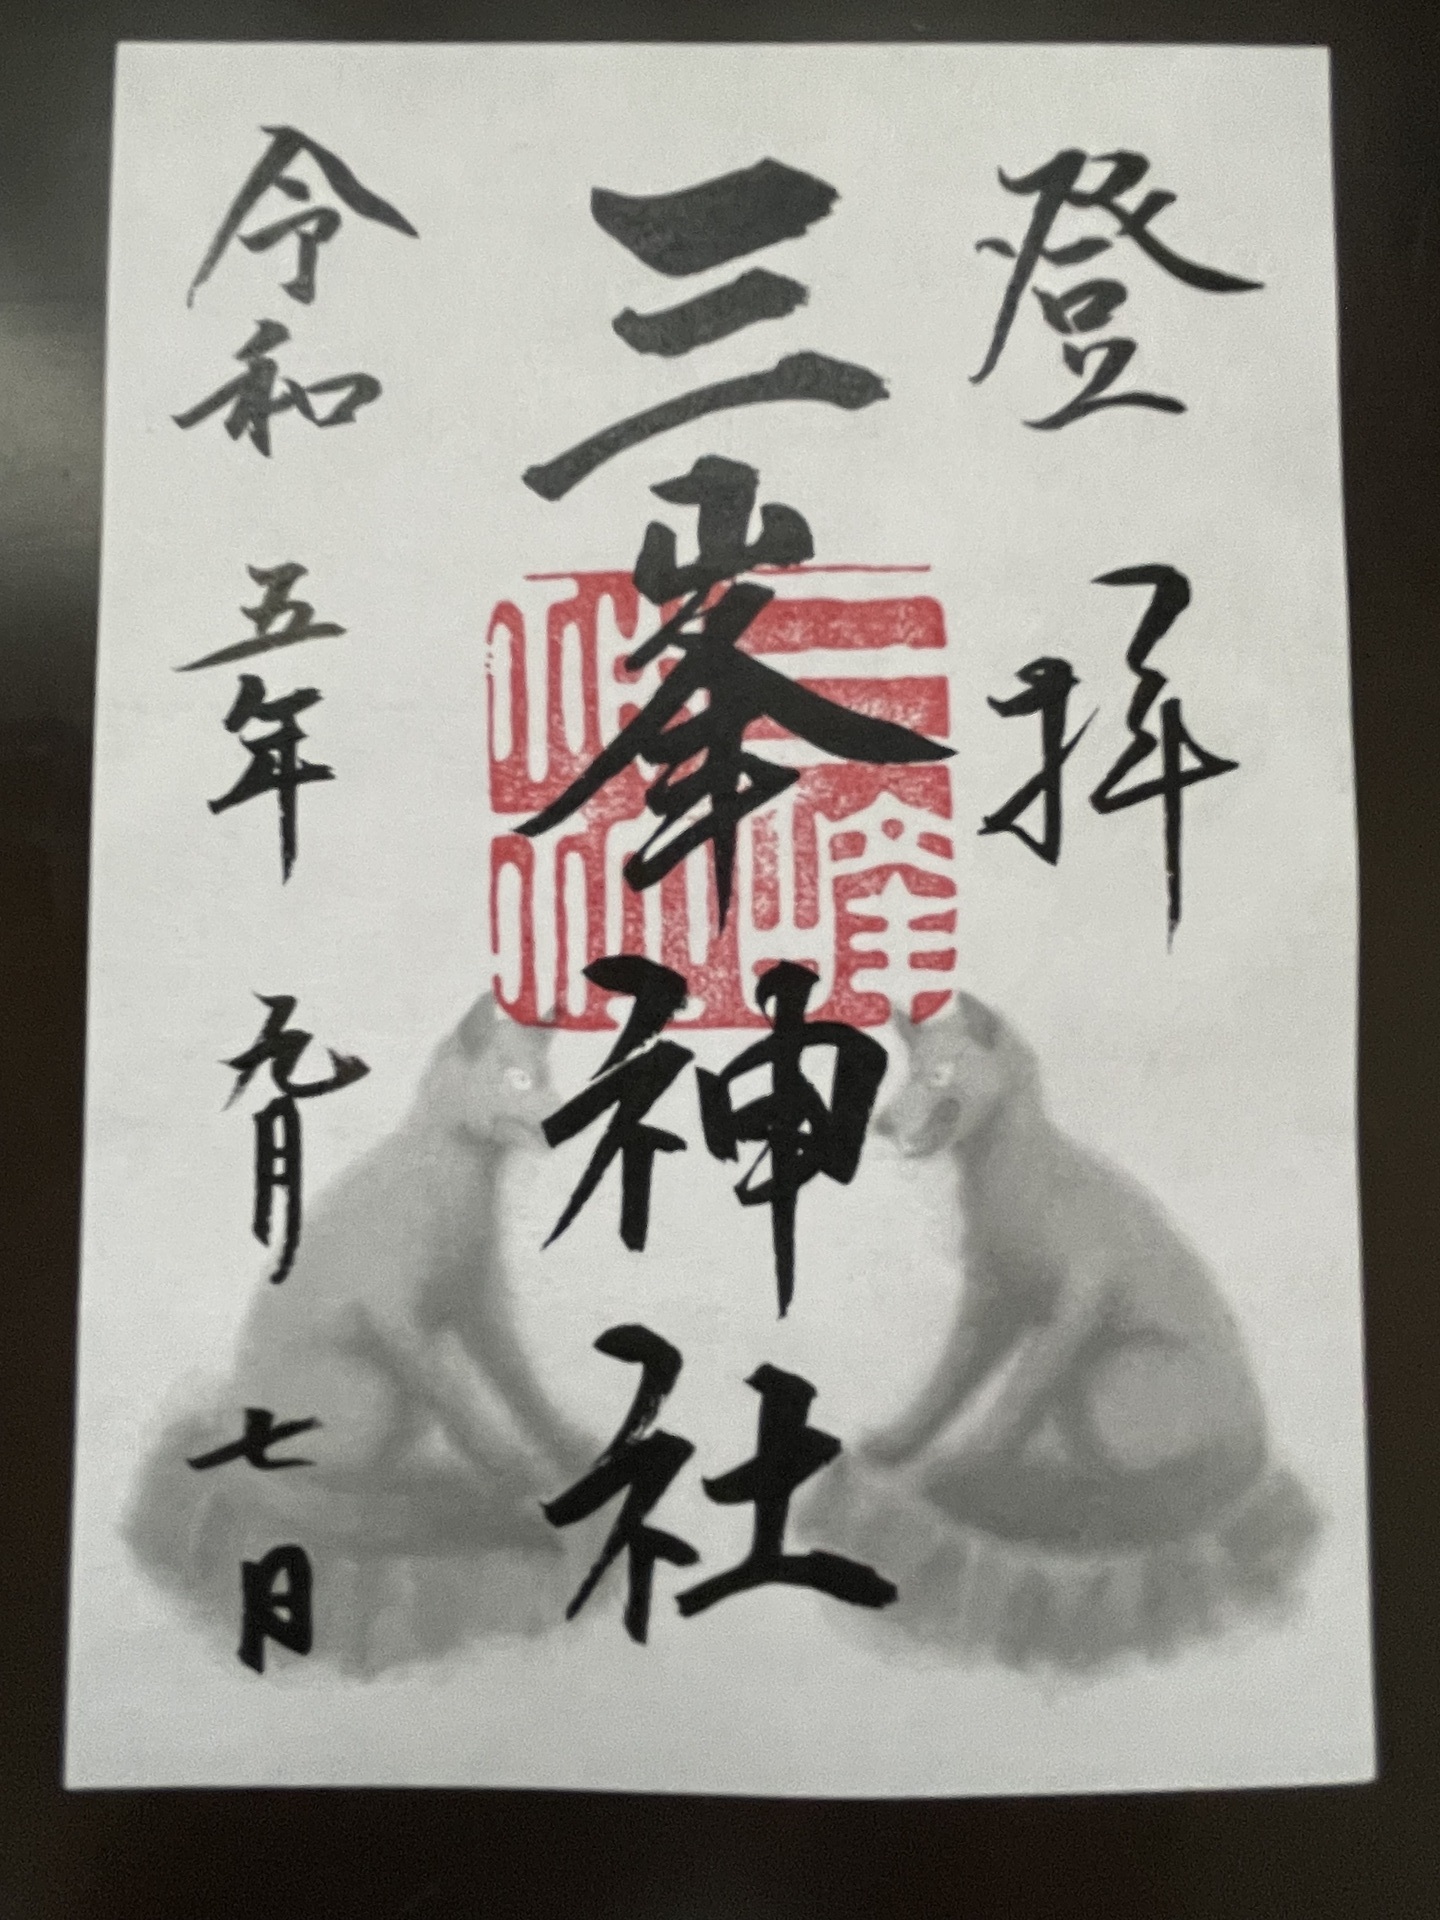 登拝
三峯神社
令和五年九月七日